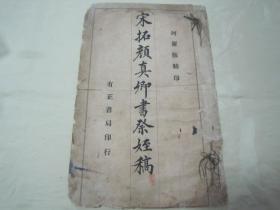 珂羅版精印
宋拓顏真卿書祭姪稿
有正書局印行